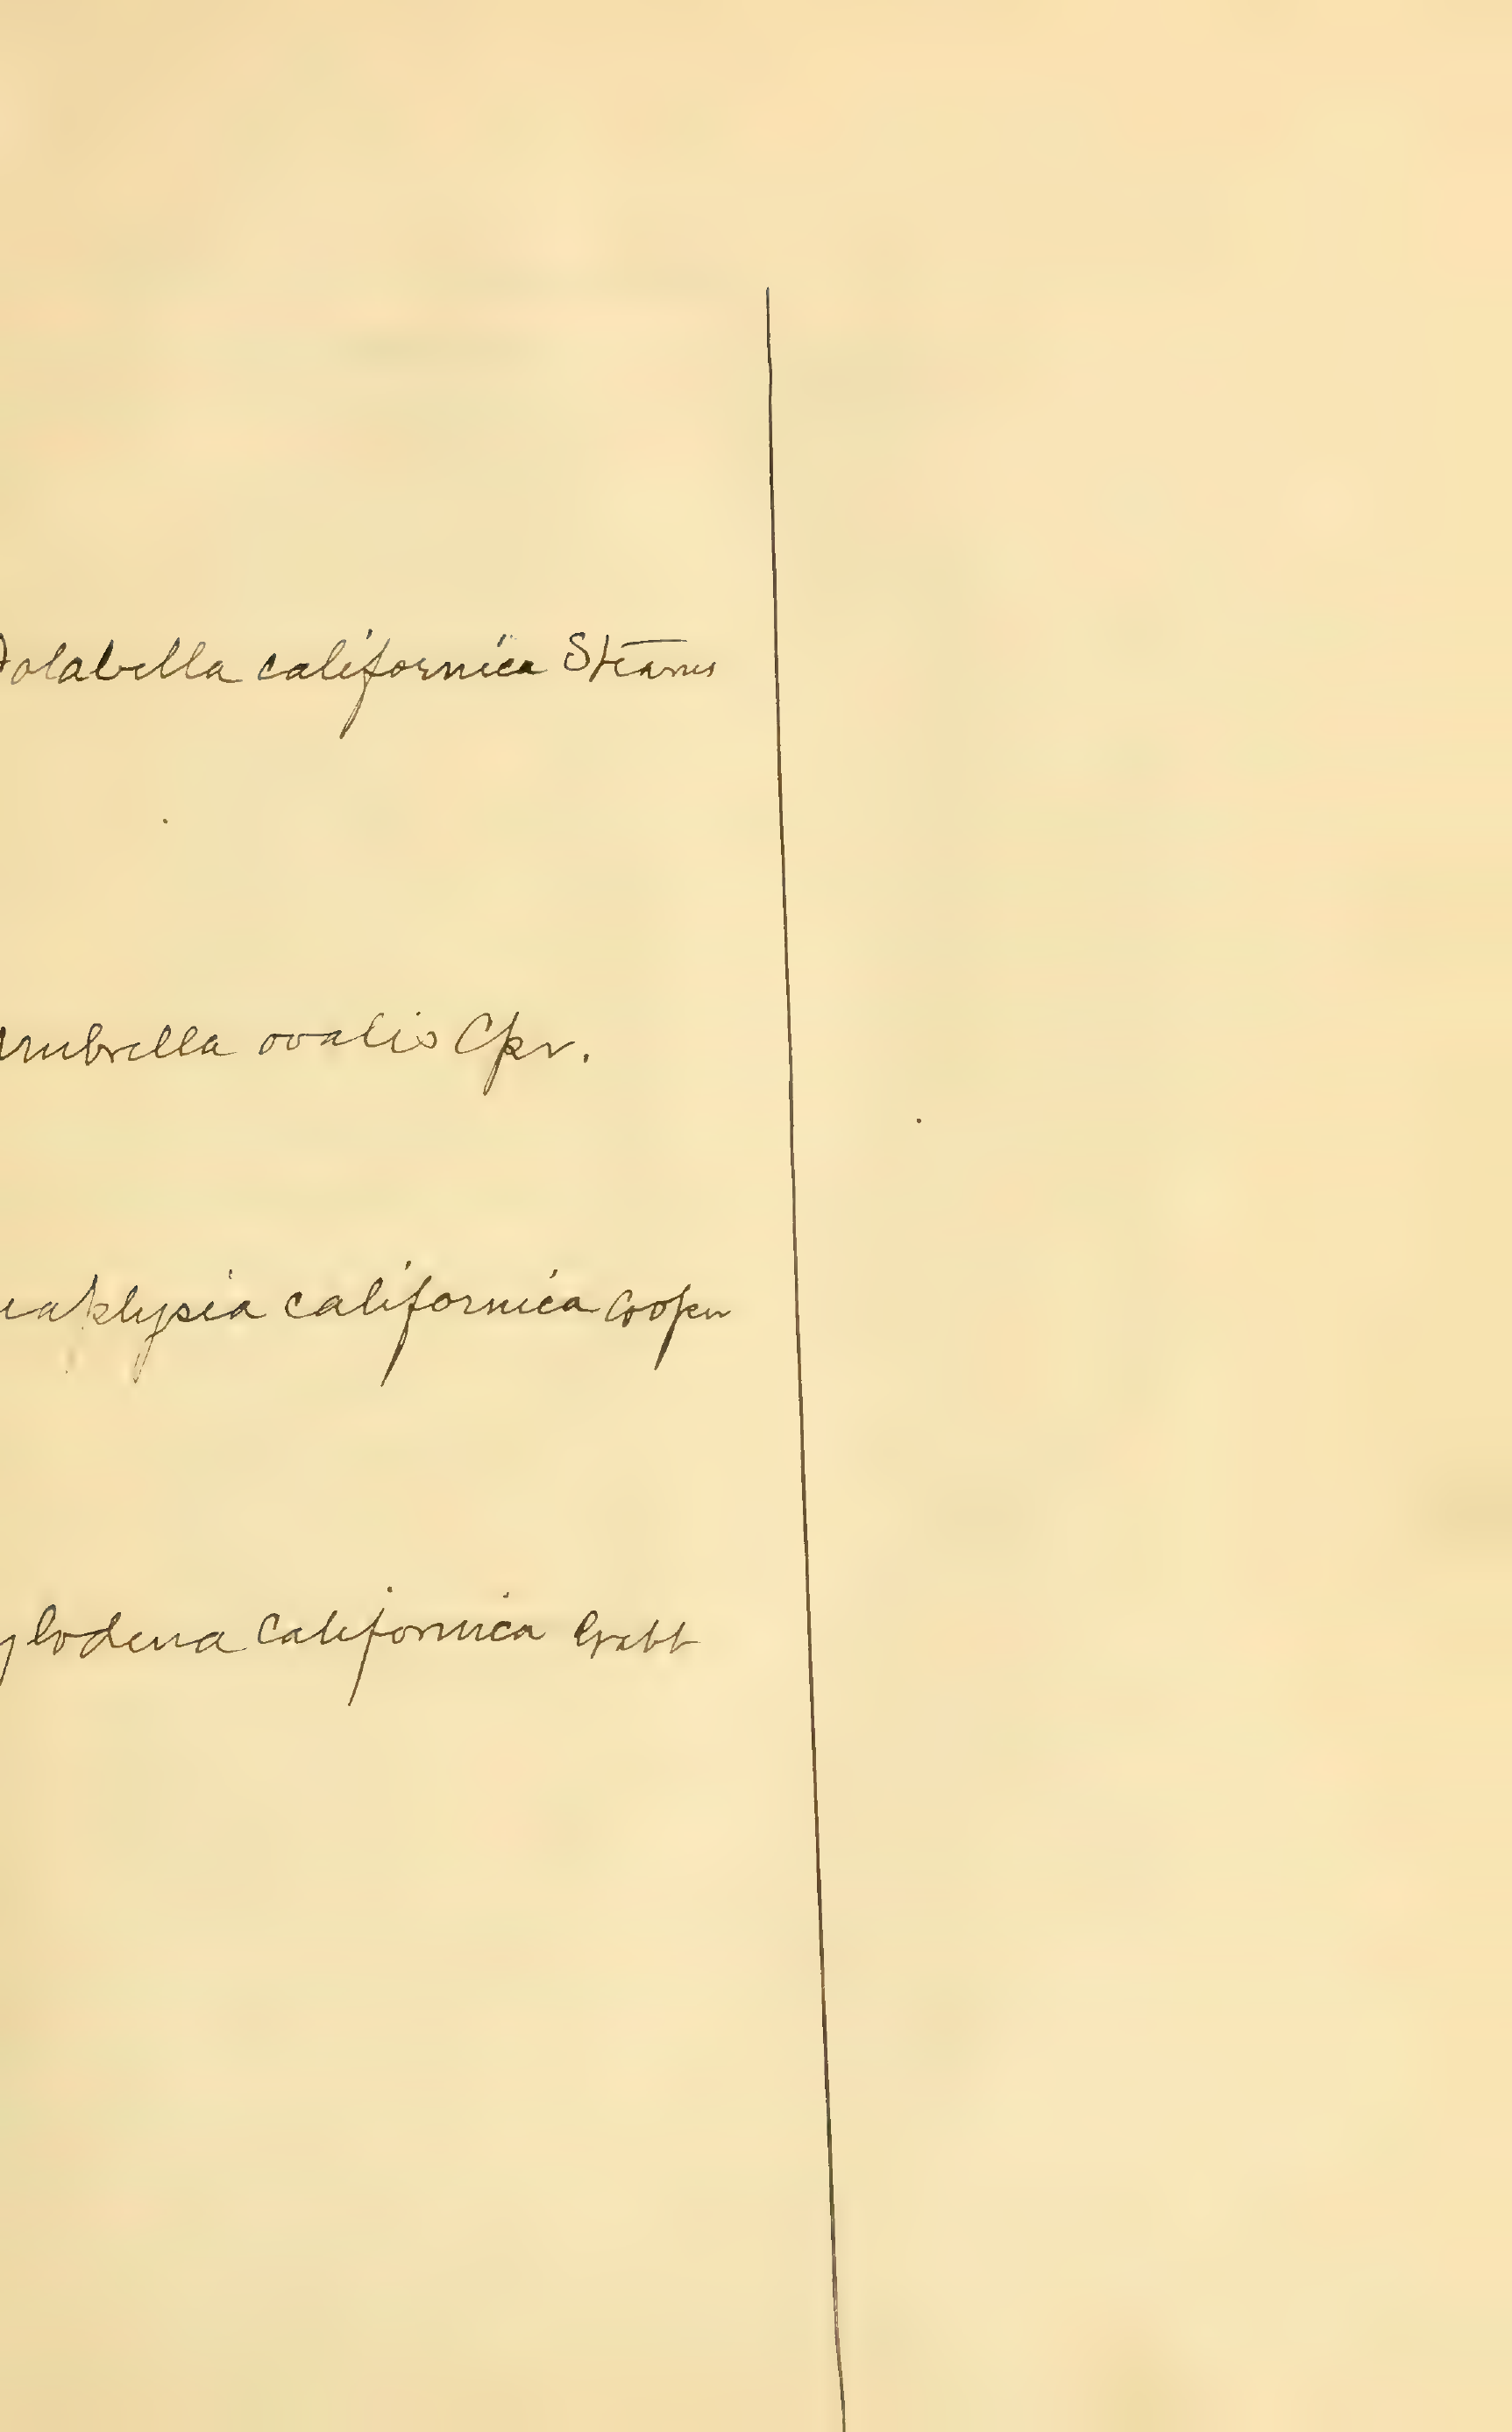 Dolabella californica Stearns
Umbrella ovalis Cpr.
californica Cooper
californica Gabb